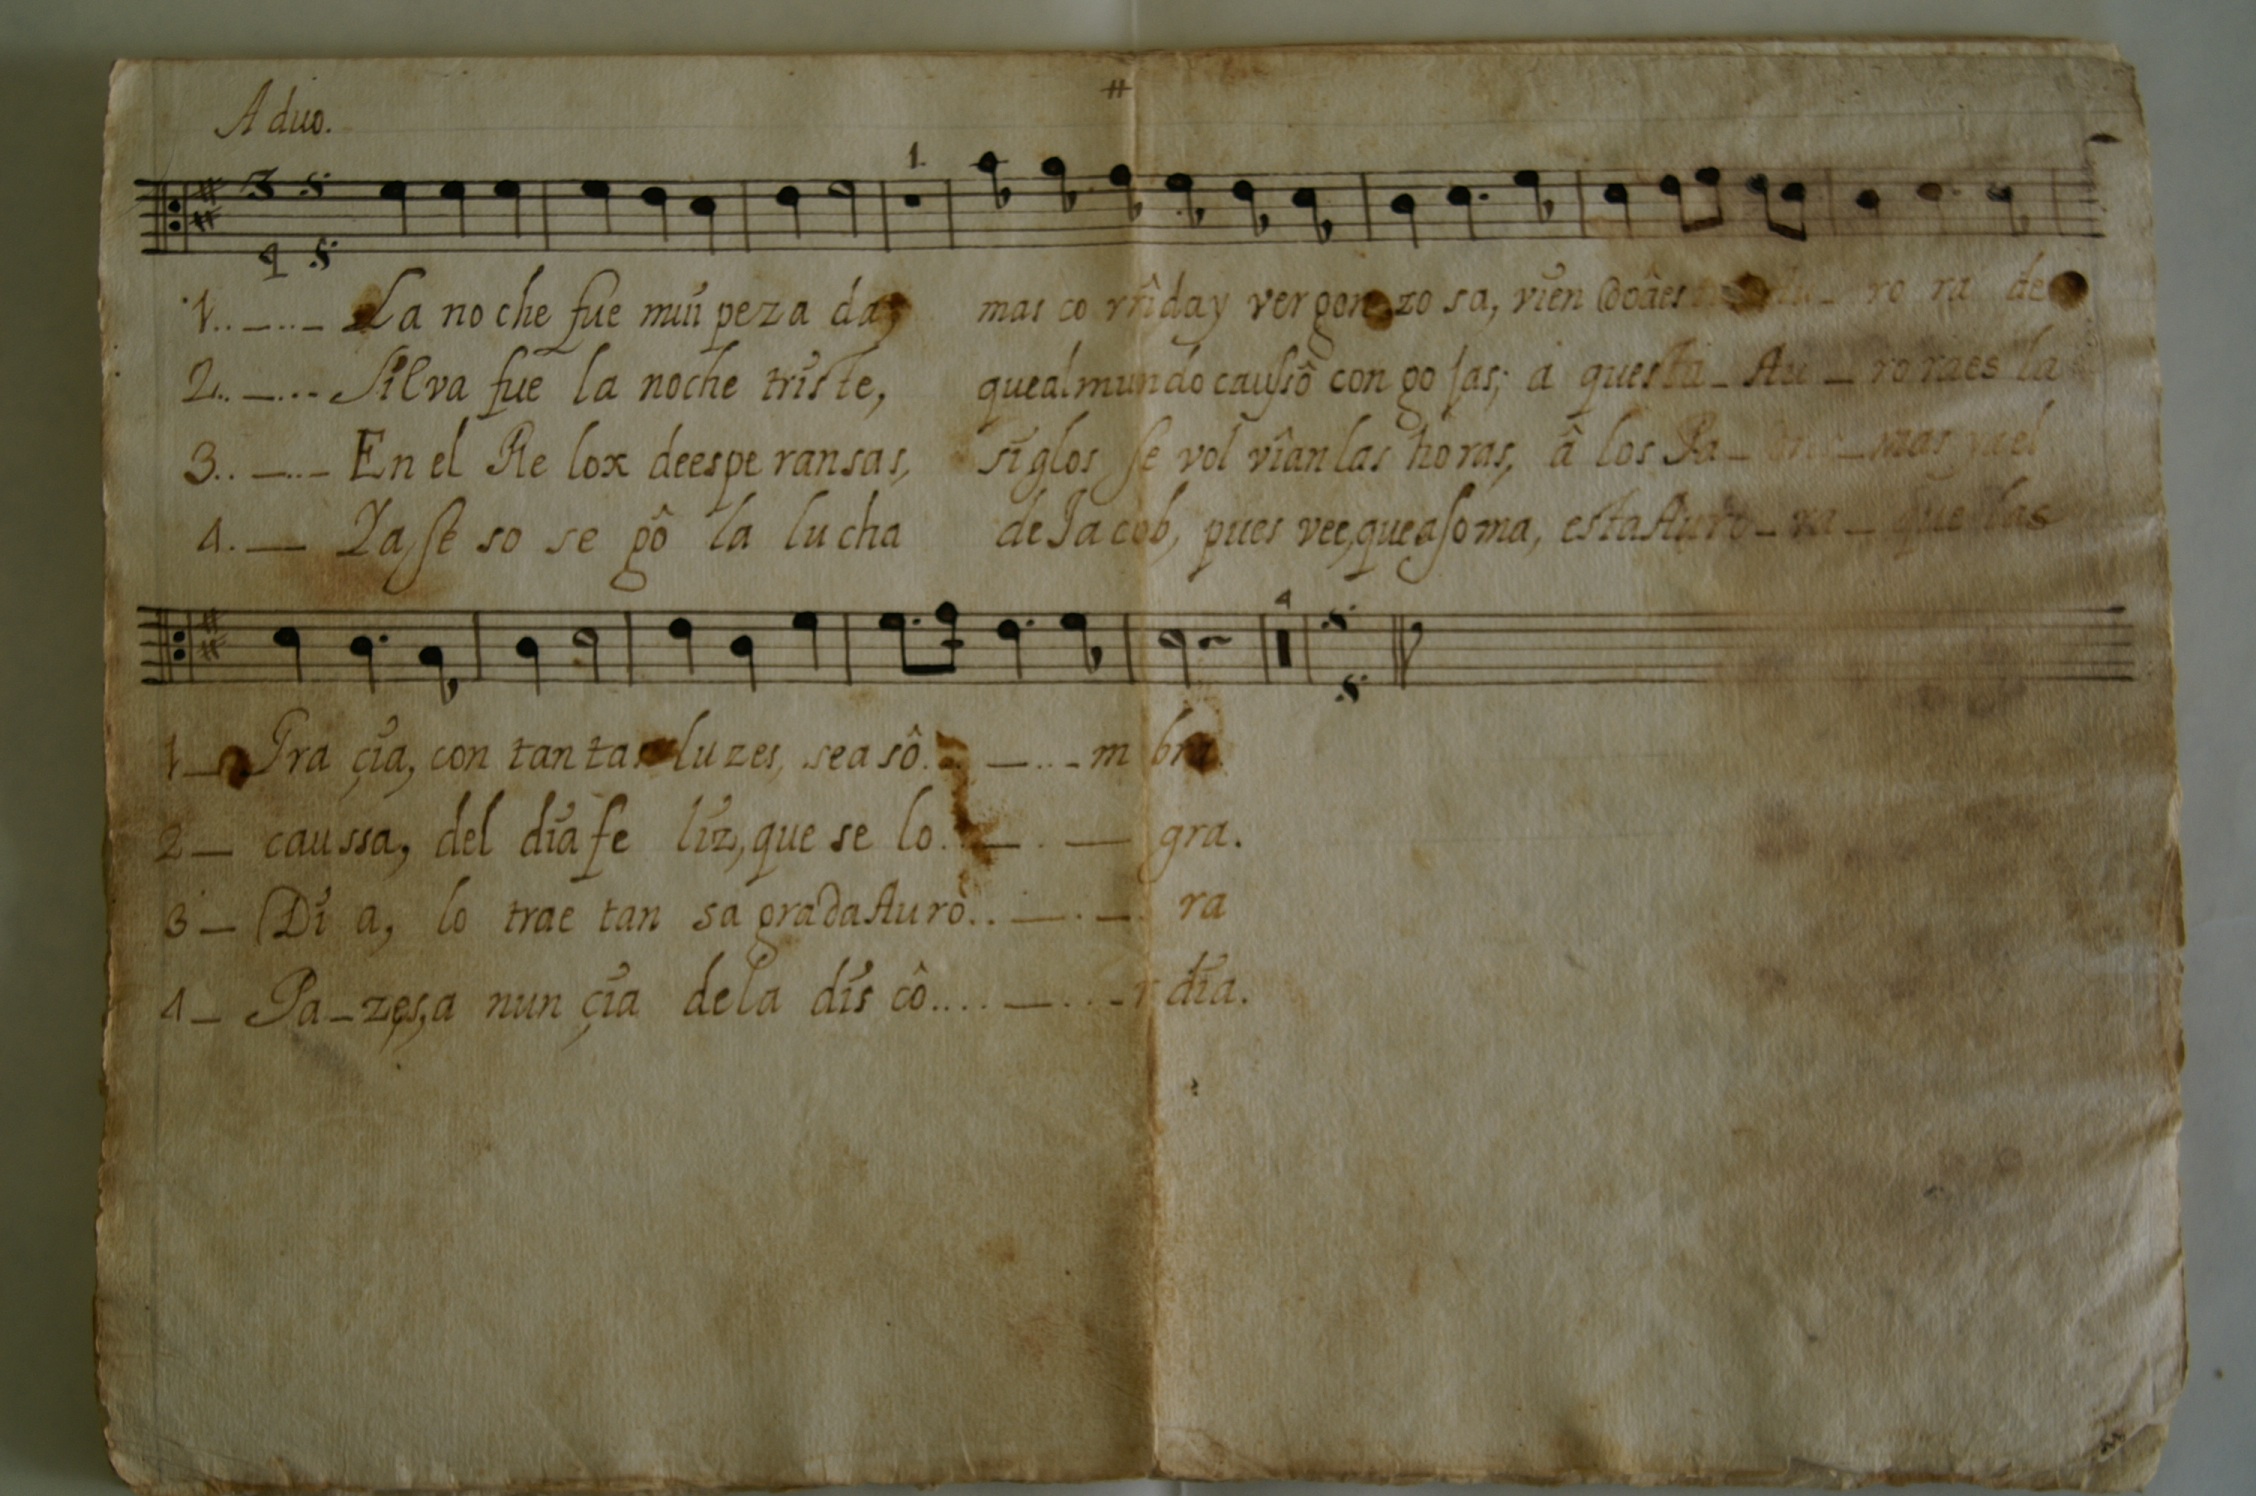 A duo.
3 4
1.
1.. La no che fue mui pe za da, mas co rrida y ver gon zo sa, vien do ro ra de
2.. Silva fue la noche triste, que al mundo caussô con go jas; a questa Au ro ra es la
3.. En el Re lox de espe ransas, siglos se vol vîan las horas, â los Pa mas y a el
4. Ya se so se gô la lucha de Jacob, pues vee, que asoma, esta Auro ra que las
4
1 Gra çia, con tantas luzes, se a sô m bra.
2 caussa, del dia fe liz, que se lo gra.
3 Di a, lo trae tan sa grada Aurô ra
4 Pa zes, a nun çia de la dis cô r dia.